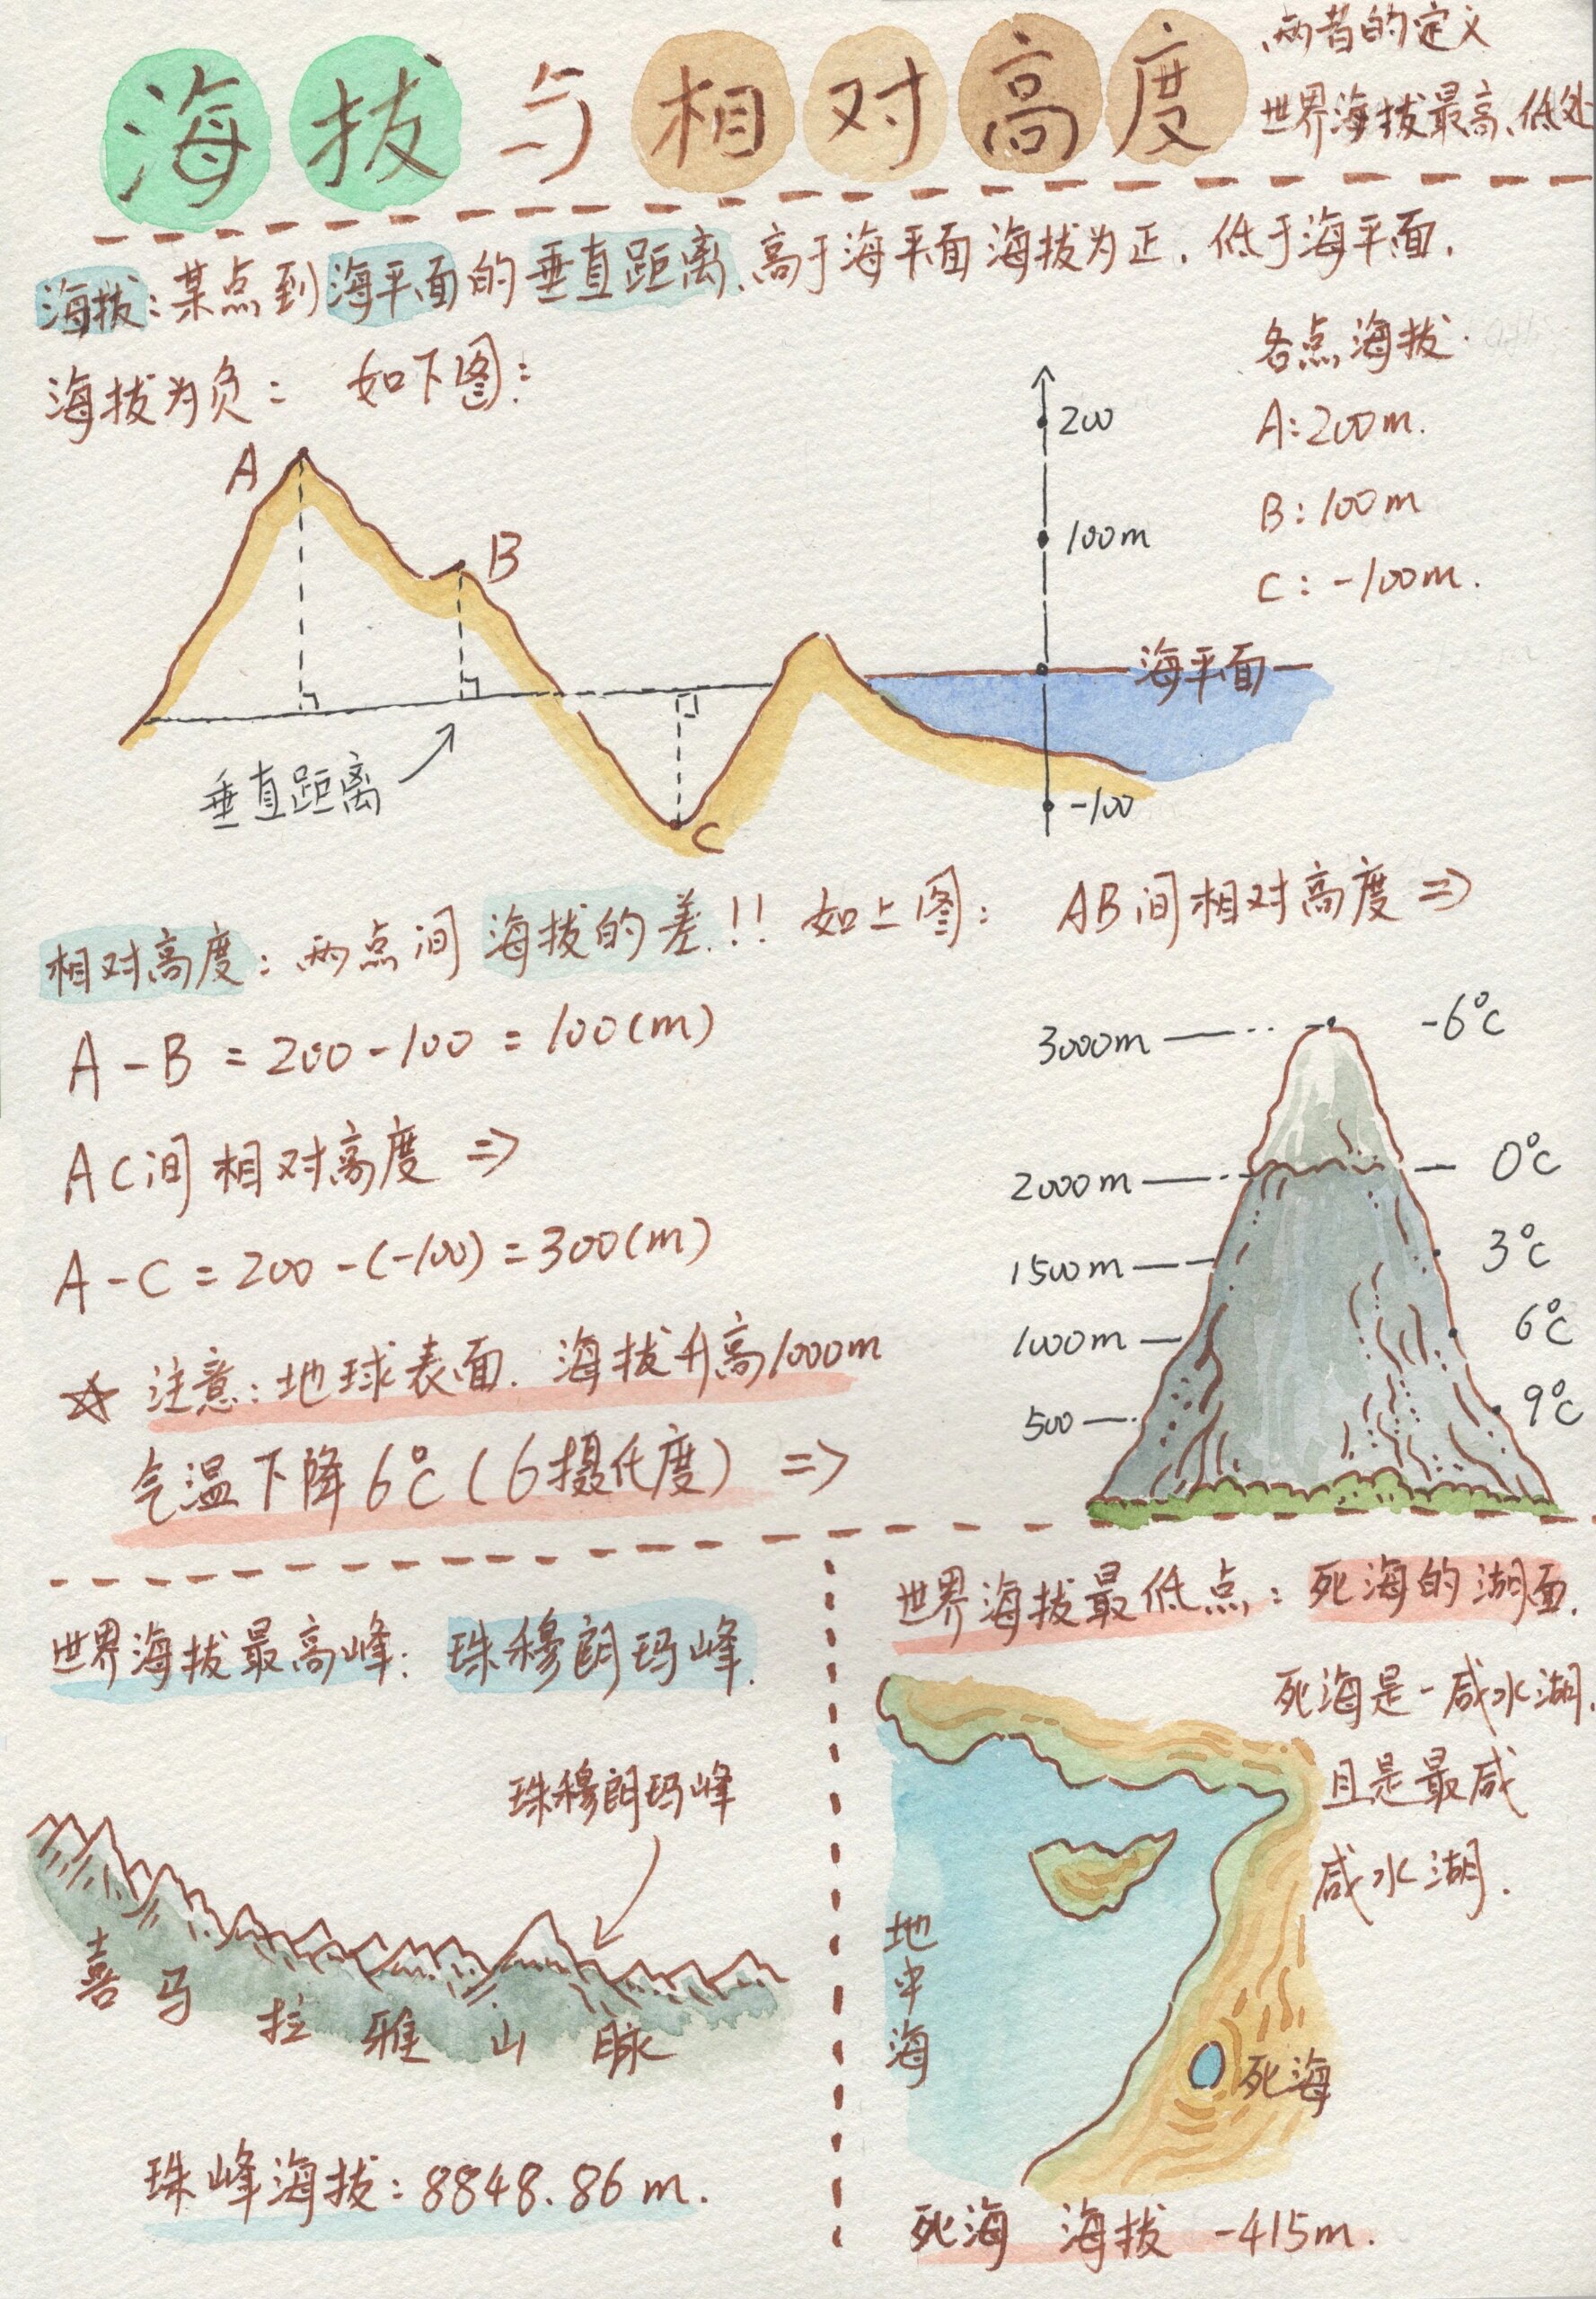 海拔与相对高度
两者的定义
世界海拔最高、低处
海拔:某点到海平面的垂直距离、高于海平面海拔为正.低于海平面.
海拔为负: 如下图:
各点海拔.
A:200m.
B:100m
C:-100m.
A
B
C
垂直距离
200
100m
海平面
-100
相对高度:两点间海拔的差.!! 如上图: AB间相对高度⇒
A-B=200-100=100(m)
AC间相对高度⇒
A-C=200-(-100)=300(m)
☆注意:地球表面.海拔升高1000m
气温下降6℃(6摄氏度)⇒
3000m -6℃
2000m 0℃
1500m 3℃
1000m 6℃
500 9℃
世界海拔最高峰:珠穆朗玛峰.
珠穆朗玛峰
喜马拉雅山脉
珠峰海拔:8848.86m.
世界海拔最低点:死海的湖面.
死海是一咸水湖.
且是最咸
咸水湖.
地中海
死海
死海 海拔 -415m.